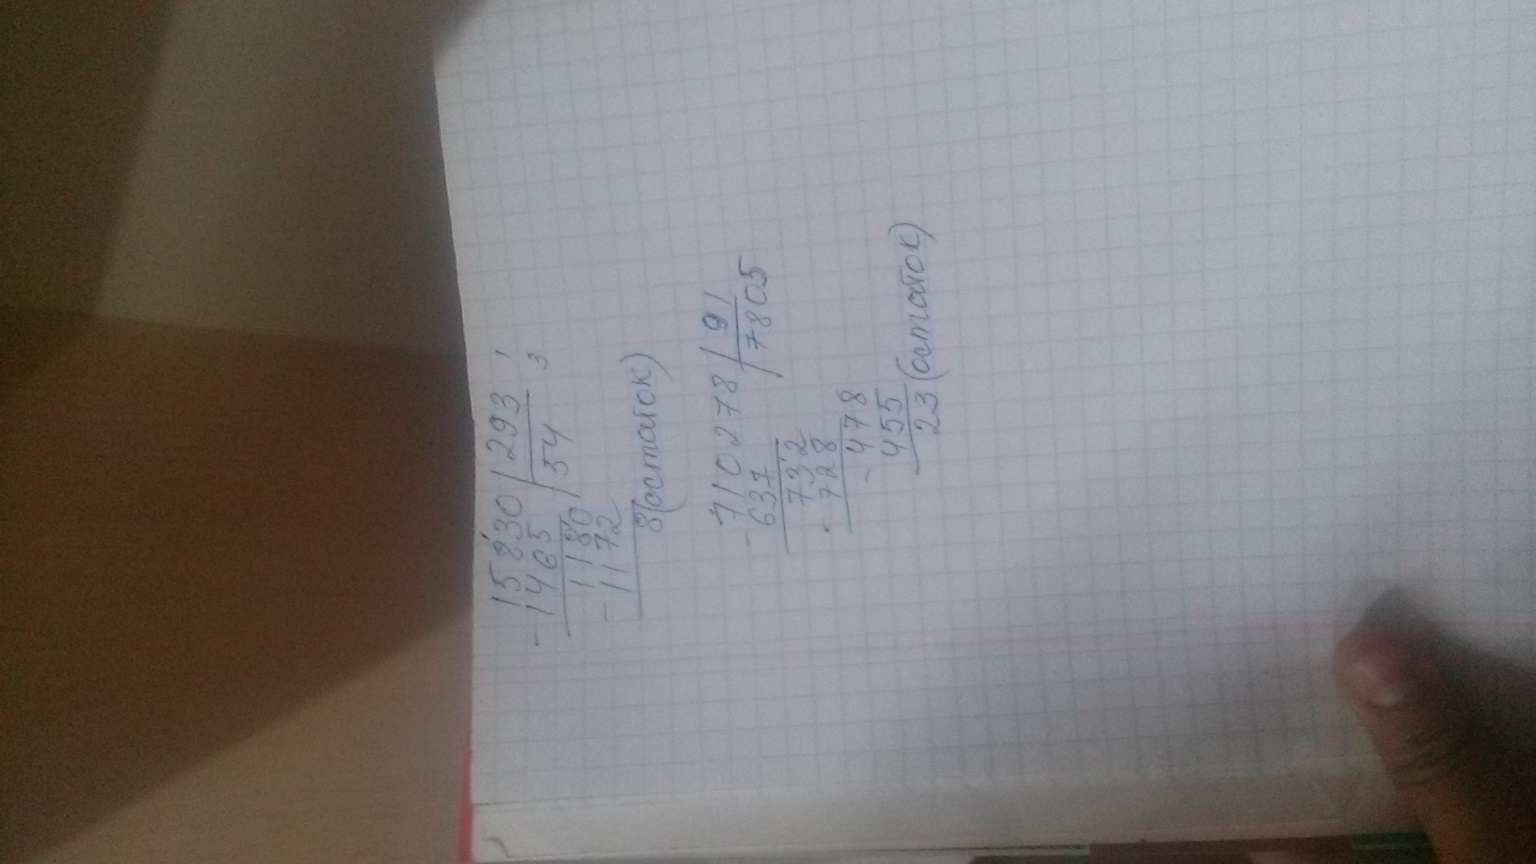 15830 | 293 1
-1465 | 54 3
1180
-1172
8 (остаток)
710278 | 91
- 637 | 7805
732
- 728
- 478
455
23 (остаток)